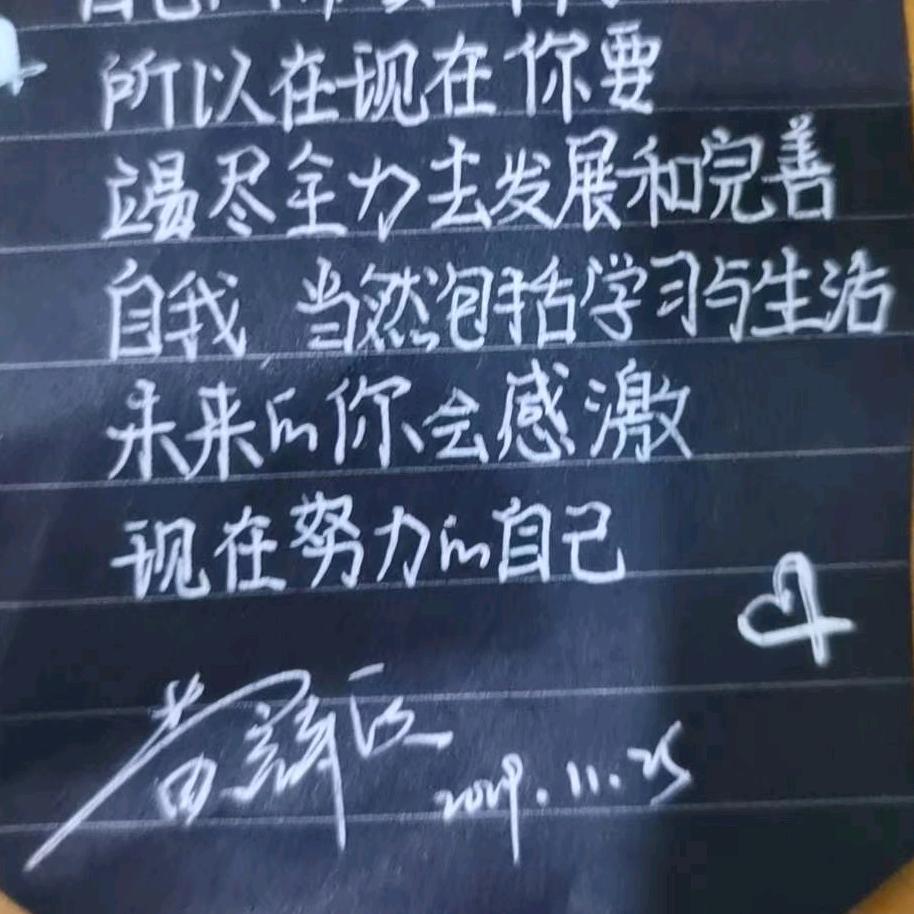 所以在现在你要
竭尽全力去发展和完善
自我 当然包括学习与生活
未来的你会感激
现在努力的自己
2019.11.25